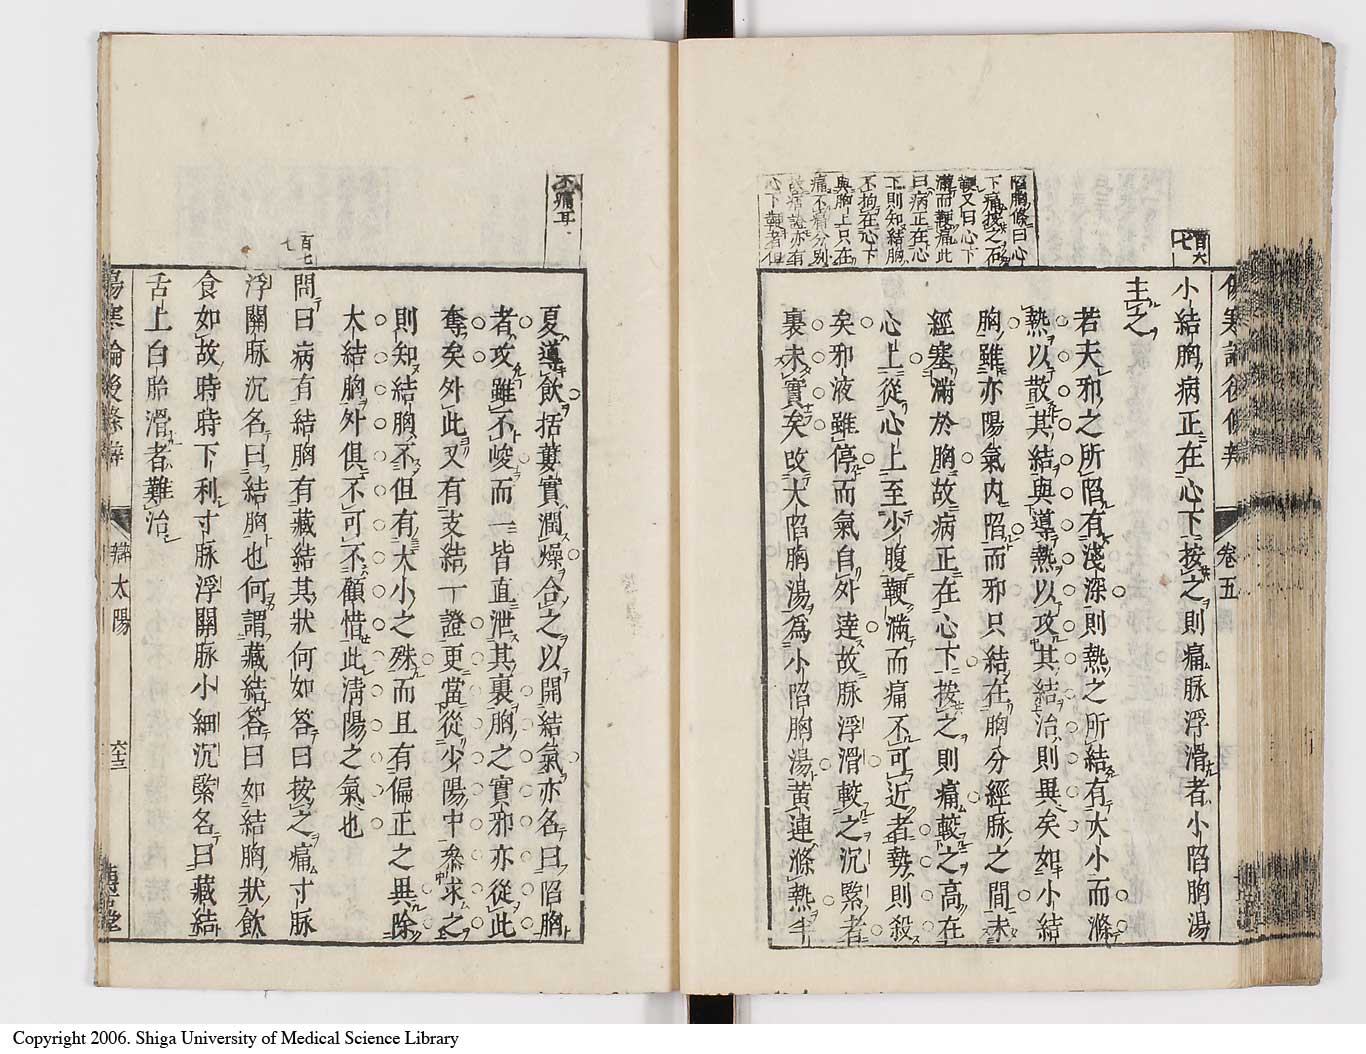 傷寒論後條辨
卷五
百六
七
小結胸病正在心下按之則痛脉浮滑者小陷胸湯
主之
若夫邪之所陷有淺深則熱之所結有大小而滌
熱以散其結與導熱以攻其結治則異矣如小結
胸雖亦陽氣內陷而邪只結在胸分經脉之間未
經塞滿於胸故病正在心下按之則痛較之高在
心上從心上至少腹鞕滿而痛不可近者勢則殺
矣邪液雖停而氣自外達故脉浮滑較之沉緊者
裏未實矣改大陷胸湯爲小陷胸湯黃連滌熱半
陷胸條曰心
下痛按之石
鞕又曰心下
滿而鞕痛此
曰病正在心
下則知結胸
不拘在心下
與胸上只在
痛不痛分別
故痞證亦有
心下鞕者但
不痛耳
夏導飲括蔞實潤燥合之以開結氣亦名曰陷胸
者攻雖不峻而一皆直泄其裏胸之實邪亦從此
奪矣外此又有支結一證更當從少陽中參求之
則知結胸不但有大小之殊而且有偏正之異除
大結胸外俱不可不顧惜此清陽之氣也
百七
七
問曰病有結胸有藏結其狀何如答曰按之痛寸脉
浮關脉沉名曰結胸也何謂藏結答曰如結胸狀飲
食如故時時下利寸脉浮關脉小細沉緊名曰藏結
舌上白胎滑者難治
傷寒論後條辨
辨太陽
六十三